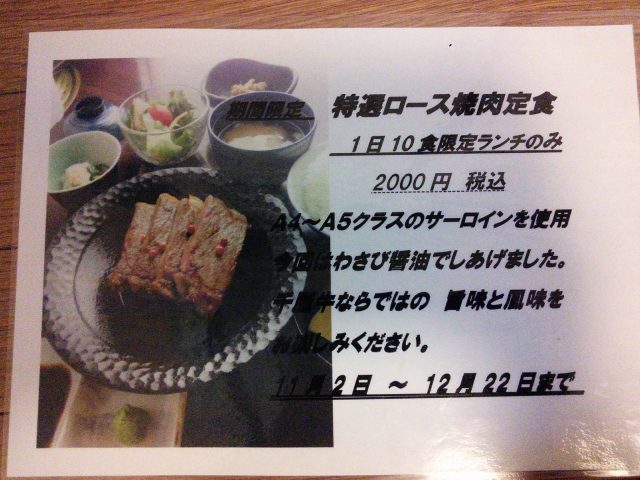 期間限定
特選ロース焼肉定食
1日10食限定ランチのみ
2000円 税込
A4～A5クラスのサーロインを使用
今回はわさび醤油でしあげました。
千屋牛ならではの 旨味と風味を
お楽しみください。
11月2日 ～ 12月22日まで